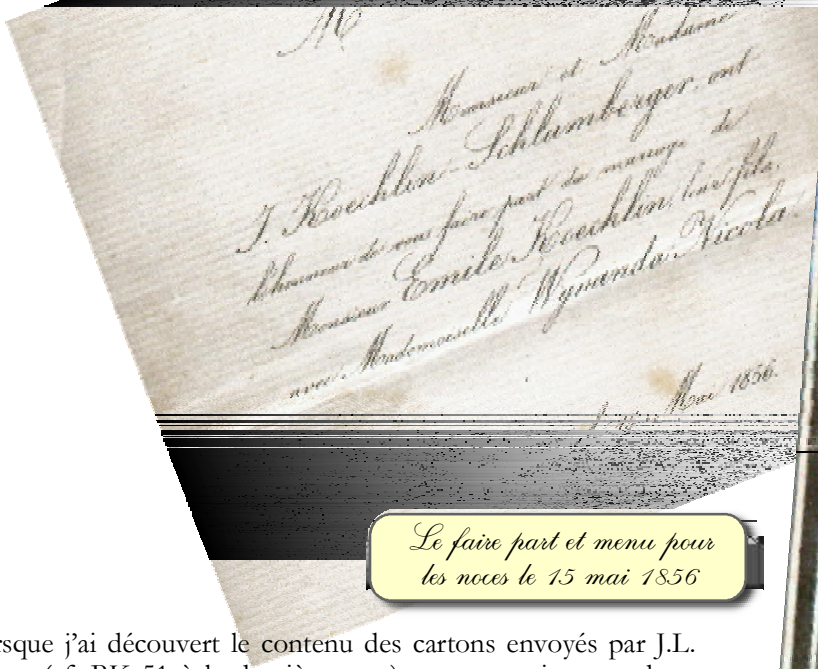 M
Monsieur et Madame
J. Koechlin-Schlumberger, ont
l'honneur de vous faire part du mariage de
Monsieur Emile Koechlin, leur fils,
avec Mademoiselle Wynanda Nicola.
Mai 1856.
Le faire part et menu pour
les noces le 15 mai 1856
rsque j'ai découvert le contenu des cartons envoyés par J.L.